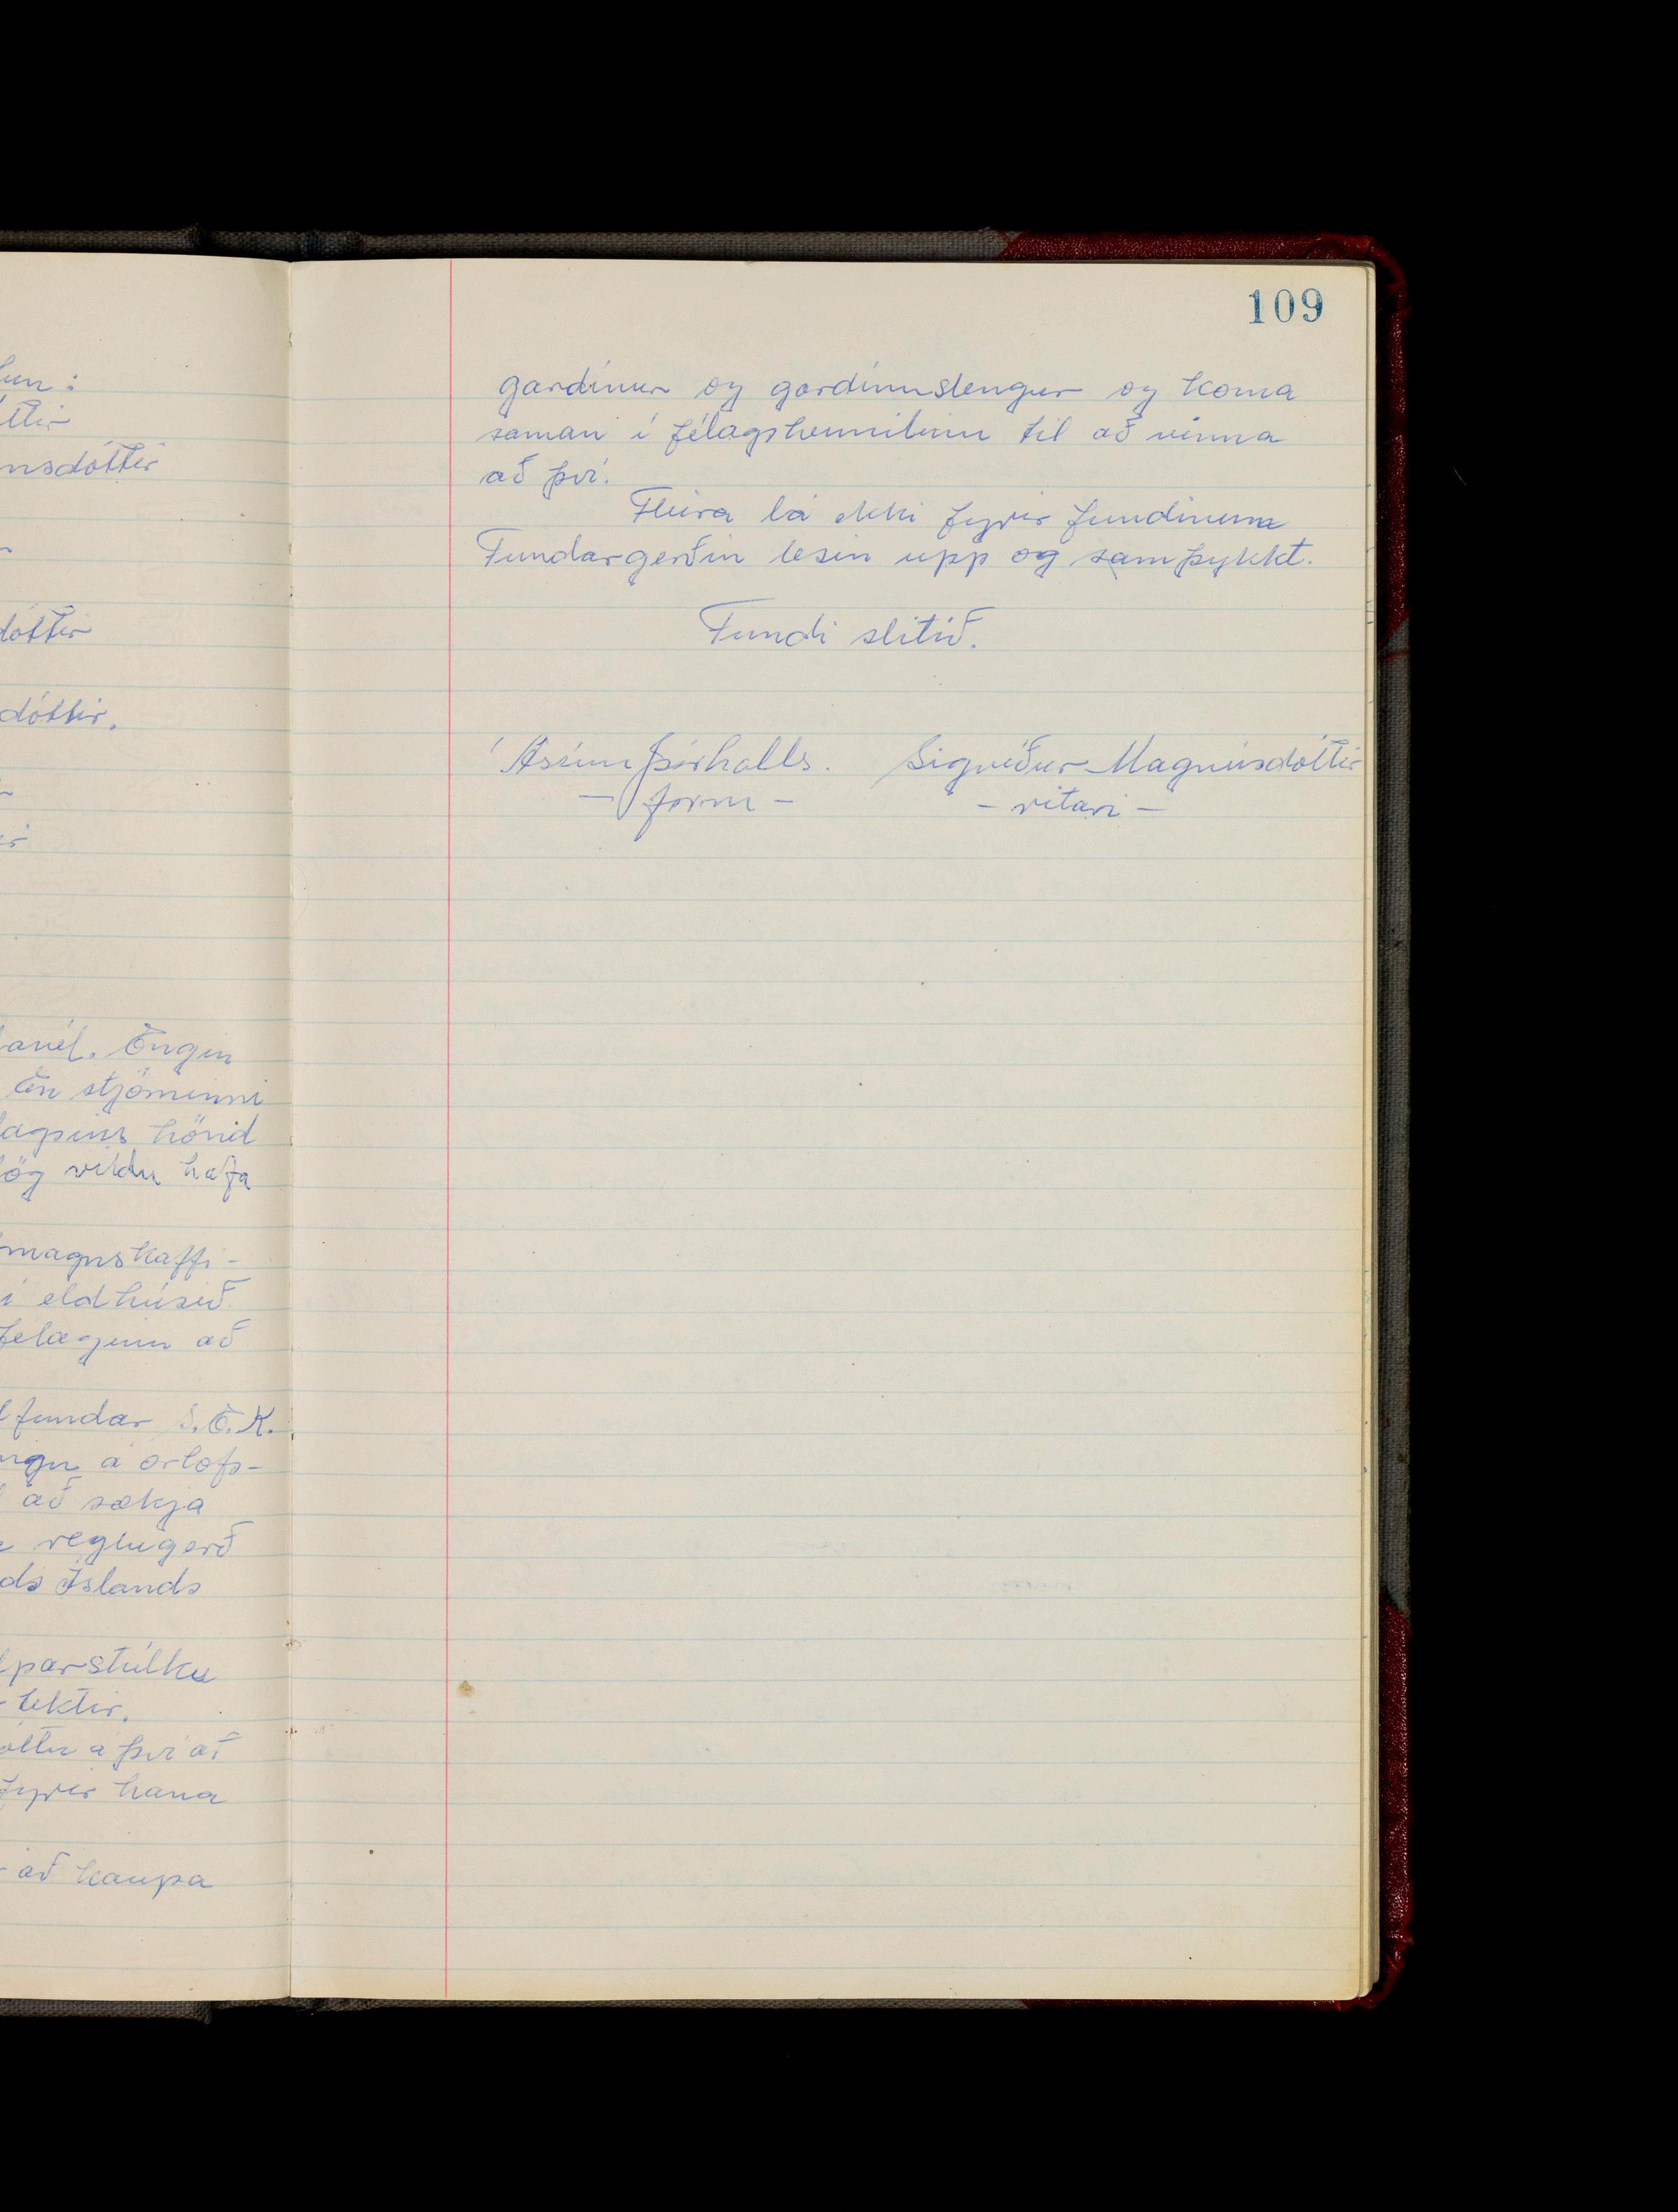 un :
ttir
nsdóttir
dóttir
dóttir.
avél. Engin
En stjórninni
lagsins hönd
lög vildu hafa
magnskaffi-
í eldhúsið
félaginu að
fundar S.E.K.
á orlofs-
að sækja
reglugerð
ds Íslands
parstúlku
tektir.
á því að
fyrir hana
að kaupa
109
gardínur og gardínustengur og koma
saman í félagsheimilinu til að vinna
að því.
Fleira lá ekki fyrir fundinum
Fundargerðin lesin upp og samþykkt.
Fundi slitið.
Ásrún Þórhalls. Sigríður Magnúsdóttir
- form - - ritari -